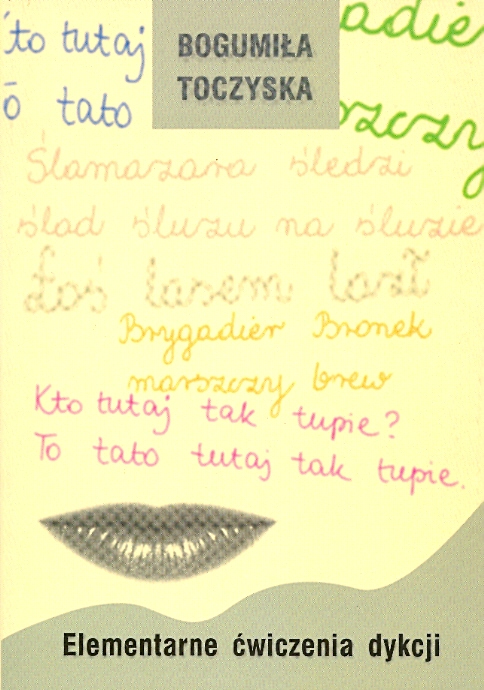 'to tutaj
BOGUMIŁA
adie
TOCZYSKA
o tato
szczy
Ślamazara śledzi
ślad śluzu na śluzie
Łoś lasem lazł
Brygadier Bronek
marszczy brew
Kto tutaj tak tupie?
To tato tutaj tak tupie.
Elementarne ćwiczenia dykcji